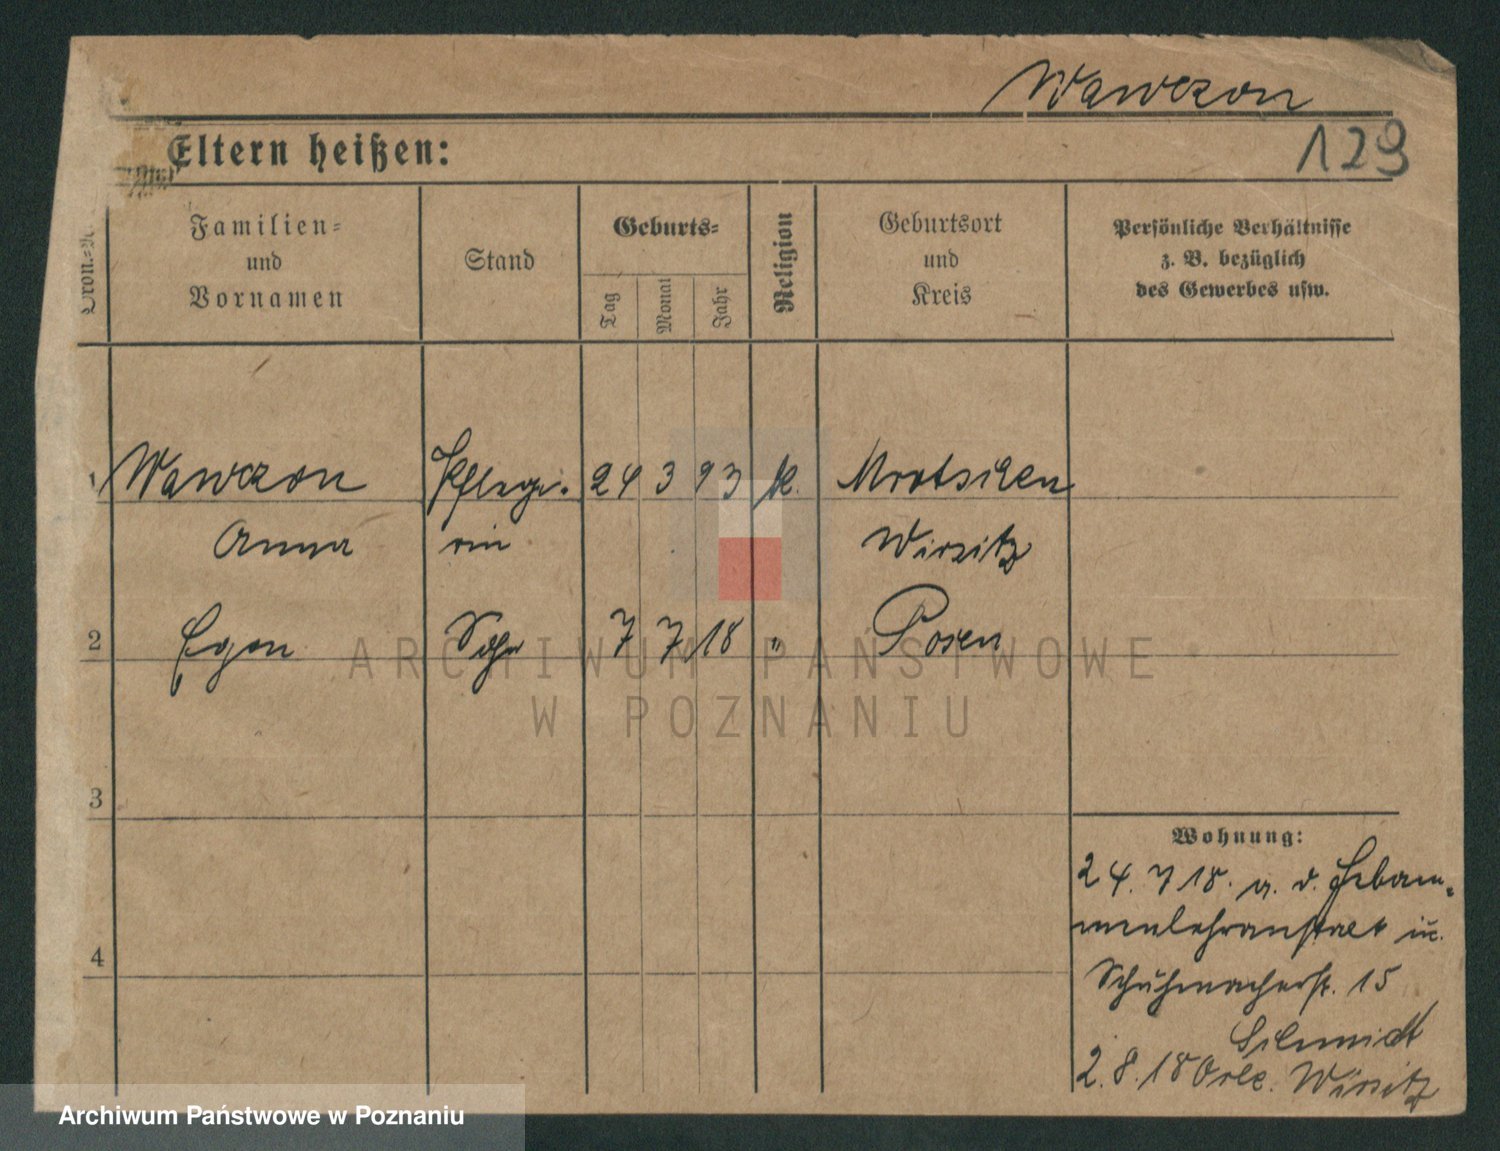 Wawczon
129
Eltern heißen:
Familien- und Vornamen
Stand
Geburts-
Tag
Monat
Jahr
Religion
Geburtsort und Kreis
Persönliche Verhältnisse z. B. bezüglich des Gewerbes usw.
1 Wawczon Pflege- 24 3 93 k. Mrotschen
Anna rin Wirsitz
2 Egon Sohn 7 7 18 " Posen
3
4
Wohnung:
24. 7 18. a. d. Hebam-
menlehranstalt in
Schuhmacherst. 15
Schmidt
2. 8. 18 Wirsitz
ARCHIWUM PAŃSTWOWE
W POZNANIU
Archiwum Państwowe w Poznaniu